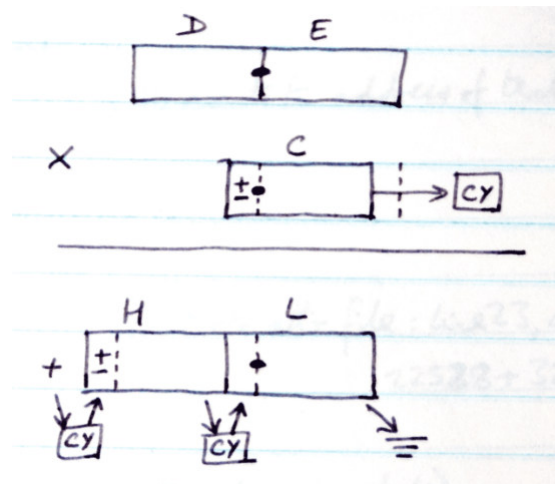 D E
X C
± CY
H L
+ ±
CY CY